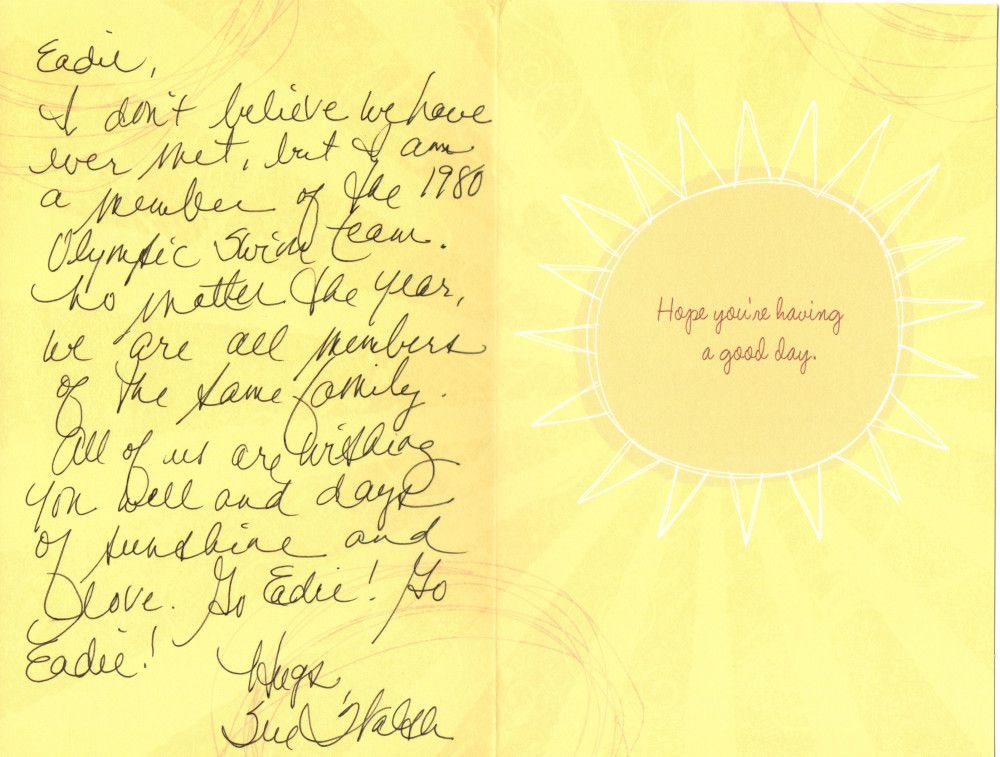 Eadie,
I don't believe we have
ever met, but I am
a member of the 1980
Olympic Swim team.
No matter the year,
we are all members
of the same family.
All of us are wishing
you well and days
of sunshine and
love. Go Eadie! Go
Eadie!
Hugs,
Sue Walsh
Hope you're having
a good day.